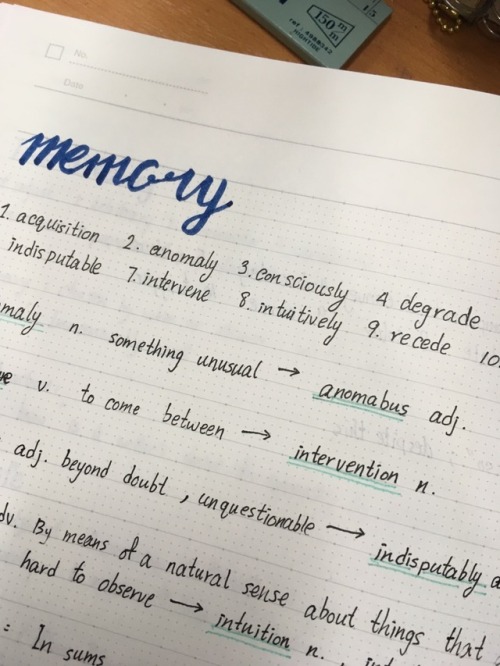 150 m/m
ref.4988542
HIGHTIDE
1/5
No.
Date
memory
1. acquisition 2. anomaly 3. consciously 4 degrade
indisputable 7. intervene 8. intuitively 9. recede 10.
maly n. something unusual → anomabus adj.
ve v. to come between → intervention n.
adj. beyond doubt , unquestionable → indisputably a
dv. By means of a natural sense about things that
hard to observe → intuition n.
: In sums